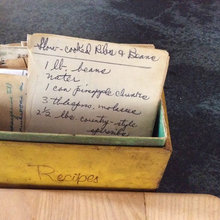 Slow-cooked Ribs & Beans
1 lb. beans
water
1 can pineapple chunks
3 tblespns. molasses
2 1/2 lbs. country-style
spareribs
Recipes